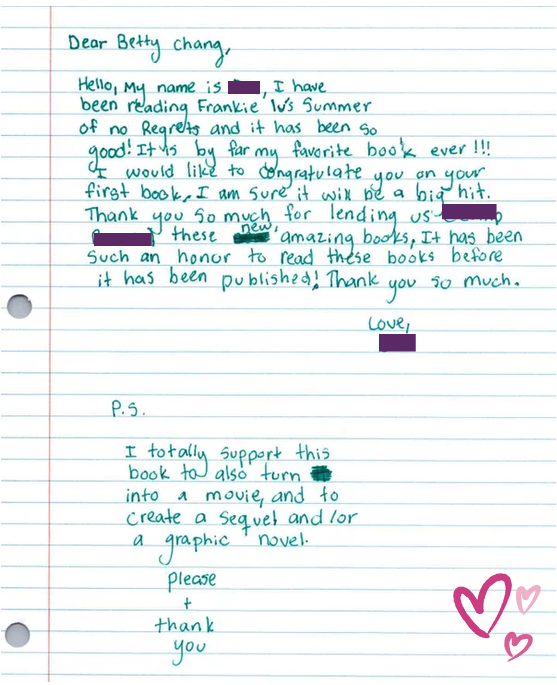 Dear Betty Chang,
Hello, My name is , I have
been reading Frankie Iv's Summer
of no Regrets and it has been so
good! It is by far my favorite book ever!!!
I would like to congratulate you on your
first book. I am sure it will be a big hit.
Thank you so much for lending us
these new, amazing books, It has been
such an honor to read these books before
it has been published! Thank you so much.
Love,
P.S.
I totally support this
book to also turn
into a movie, and to
create a sequel and/or
a graphic novel.
please
+
thank
you